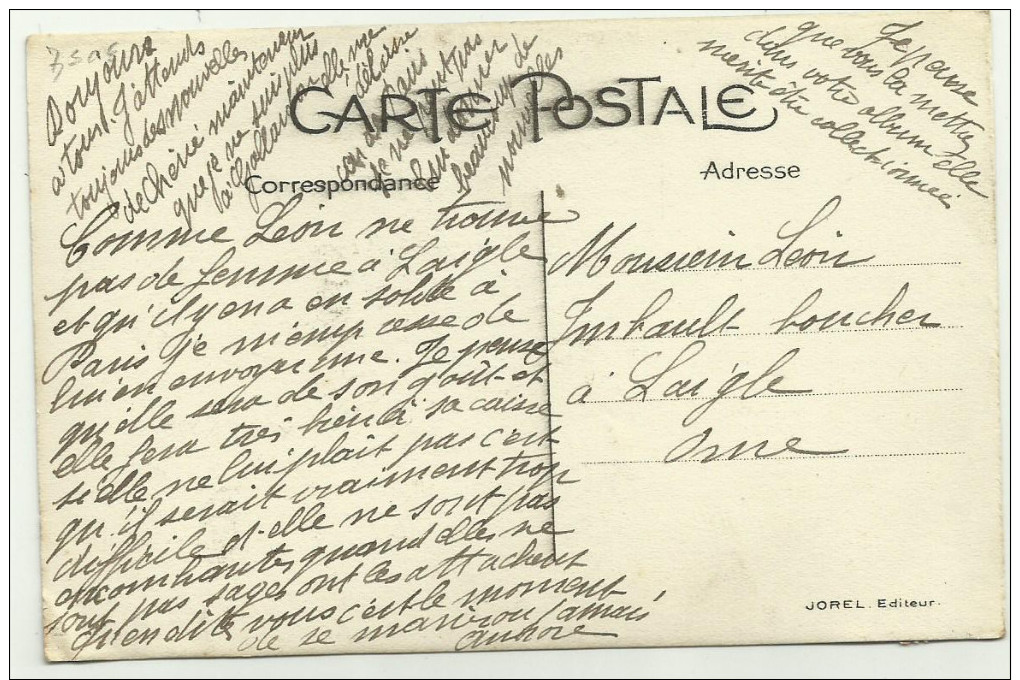 CARTE POSTALE
Correspondance
Adresse
Comme Léon ne trouve
pas de femme à Laigle
et qu'il y en a en solde à
Paris je m'empresse de
lui en envoyer une. Je pense
qu'elle sera de son goût et
elle fera très bien à sa caisse
si elle ne lui plait pas c'est
qu'il serait vraiment trop
difficile et elle ne sont pas
encombrantes quand elles ne
sont pas sages ont les attachent
qu'en dite vous c'est le moment
de se marier ou jamais
Aurore
Bonjours
a tous. J'attends
toujours des nouvelles
de Chérie maintenant
que je ne suis plus
là elle me
délaisse
je ne peut pas
leur donner
beaucoup de
nouvelles
Je pense
que vous la mettrez
dans votre album elle
merite d'être collectionnée
Monsieur Léon
Imbault boucher
à Laigle
Orne
JOREL. Editeur.